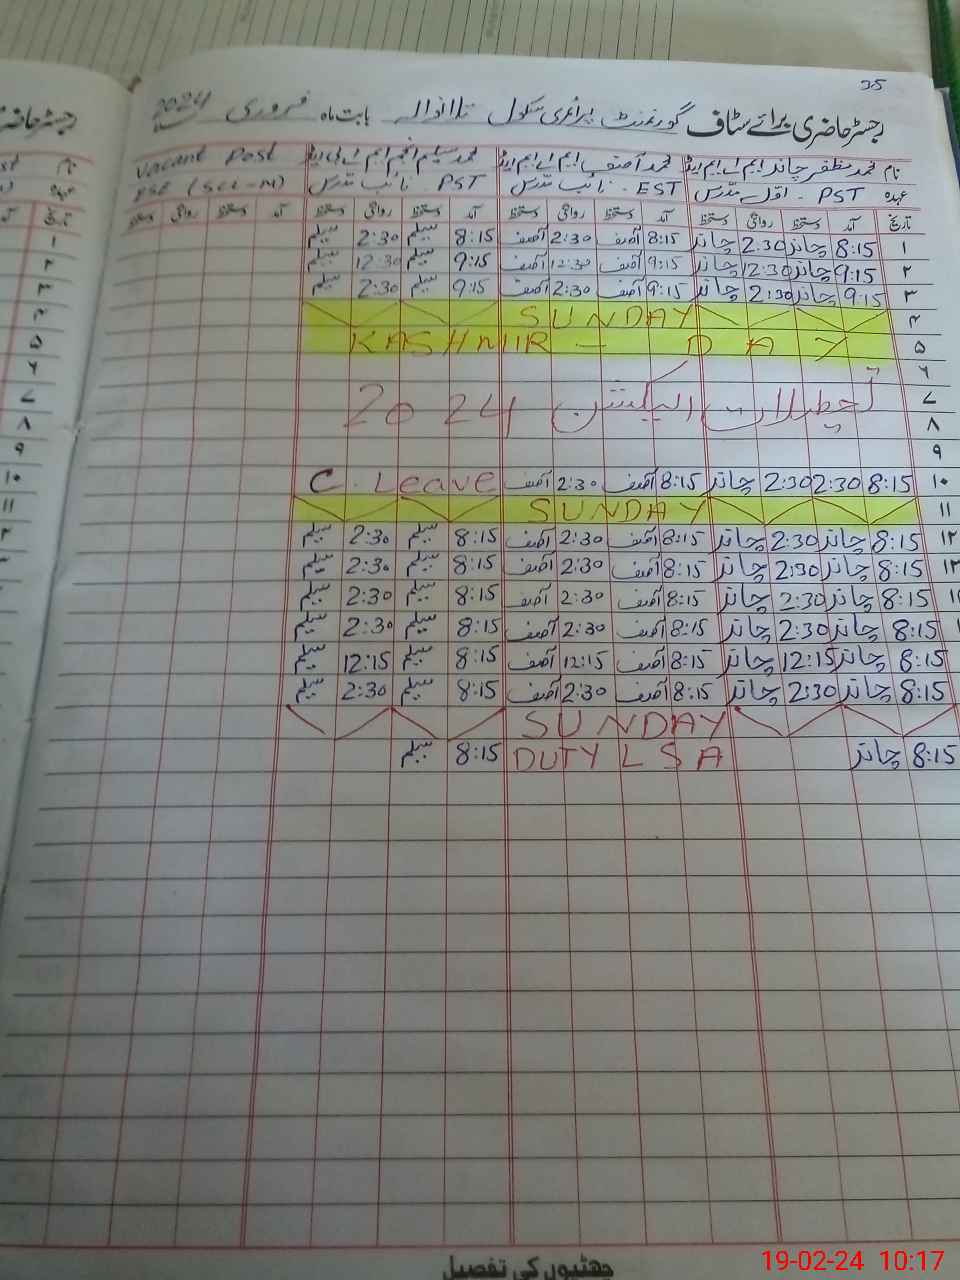 35
رجسٹر حاضری برائے سٹاف گورنمنٹ پرائمری سکول بابت ماہ فروری 2024
نام محمد مظفر چاند ایم اے ایم ایڈ محمد آصف ایم اے ایم ایڈ محمد سلیم انجم ایم اے بی ایڈ Vacant Post
عہدہ PST - اول مدرس EST - نائب مدرس PST - نائب مدرس ESE (Sci-M)
تاریخ آمد دستخط روانگی دستخط آمد دستخط روانگی دستخط آمد دستخط روانگی دستخط آمد دستخط روانگی دستخط
۱ 8:15 چاند 2:30 چاند 8:15 آصف 2:30 آصف 8:15 سلیم 2:30 سلیم
۲ 9:15 چاند 12:30 چاند 9:15 آصف 12:30 آصف 9:15 سلیم 12:30 سلیم
۳ 9:15 چاند 2:30 چاند 9:15 آصف 2:30 آصف 9:15 سلیم 2:30 سلیم
۴ SUNDAY
۵ KASHMIR - DAY
۶
۷ تعطیلات الیکشن 2024
۸
۹
۱۰ 8:15 2:30 2:30 چاند 8:15 آصف 2:30 آصف C. Leave
۱۱ SUNDAY
۱۲ 8:15 چاند 2:30 چاند 8:15 آصف 2:30 آصف 8:15 سلیم 2:30 سلیم
۱۳ 8:15 چاند 2:30 چاند 8:15 آصف 2:30 آصف 8:15 سلیم 2:30 سلیم
8:15 چاند 2:30 چاند 8:15 آصف 2:30 آصف 8:15 سلیم 2:30 سلیم
8:15 چاند 2:30 چاند 8:15 آصف 2:30 آصف 8:15 سلیم 2:30 سلیم
8:15 چاند 12:15 چاند 8:15 آصف 12:15 آصف 8:15 سلیم 12:15 سلیم
8:15 چاند 2:30 چاند 8:15 آصف 2:30 آصف 8:15 سلیم 2:30 سلیم
SUNDAY
8:15 چاند DUTY LSA 8:15 سلیم
چھٹیوں کی تفصیل
19-02-24 10:17